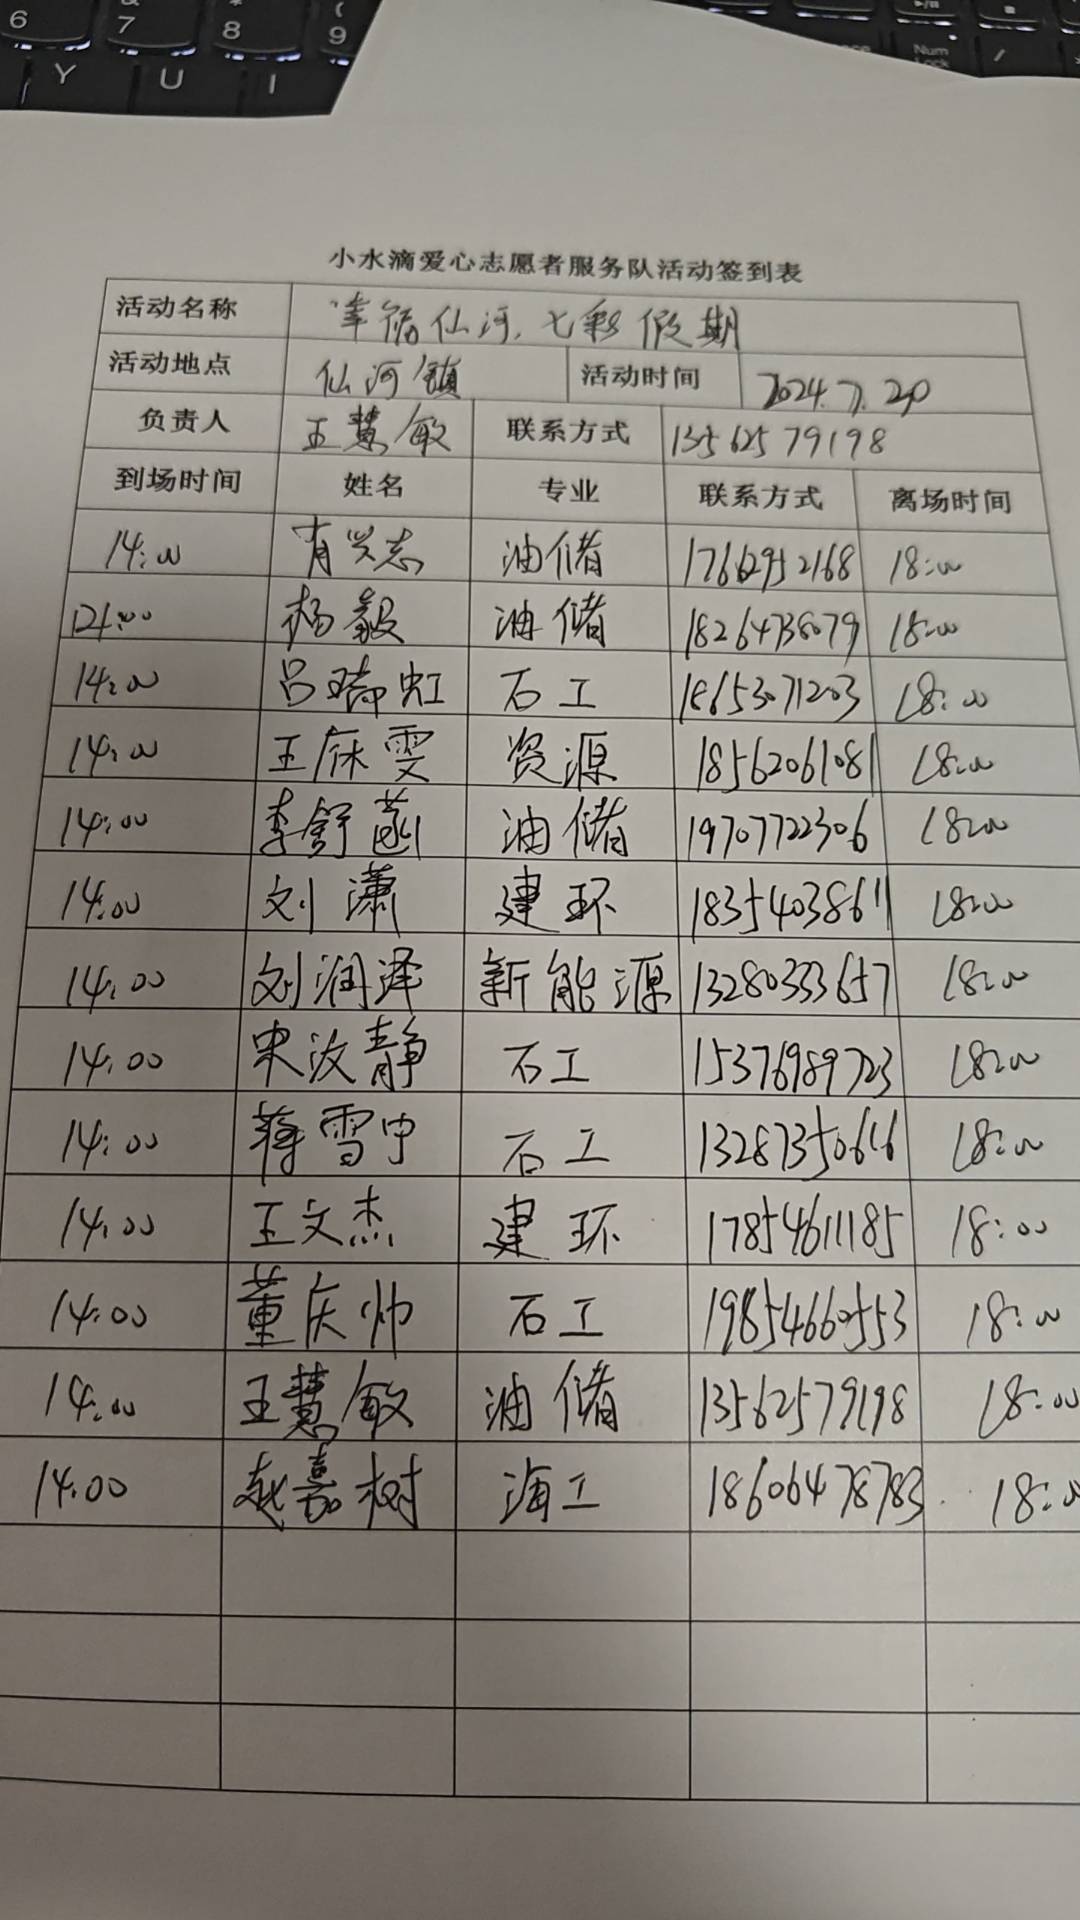 6 7 8 9
Y U I
Num Lock /
小水滴爱心志愿者服务队活动签到表
活动名称 幸福仙河.七彩假期
活动地点 仙河镇 活动时间 2024.7.20
负责人 王慧敏 联系方式 13562579198
到场时间 姓名 专业 联系方式 离场时间
14:00 肖兴志 油储 17662952168 18:00
14:00 杨毅 油储 18264738079 18:00
14:00 吕瑞虹 石工 18653071203 18:00
14:00 王庥雯 资源 18562061081 18:00
14:00 李舒菡 油储 19707722306 18:00
14:00 刘潇 建环 18354038611 18:00
14:00 刘润泽 新能源 13280333657 18:00
14:00 宋汝静 石工 15376989723 18:00
14:00 蒋雪中 石工 13287350616 18:00
14:00 王文杰 建环 17854611185 18:00
14:00 董庆帅 石工 19854660553 18:00
14:00 王慧敏 油储 13562579198 18:00
14:00 赵嘉树 海工 18606478783 18:00